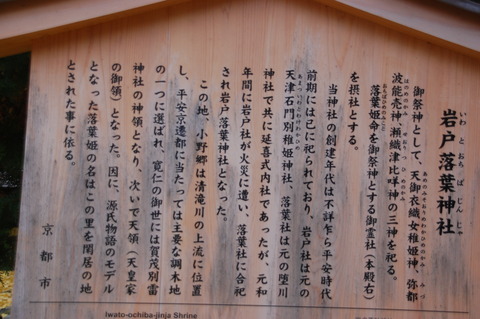 岩戸落葉神社
いわとおちばじんじゃ
御祭神として、天御衣織女稚姫神、弥都
波能売神、瀬織津比咩神の三神を祀る。
落葉姫命を御祭神とする御霊社（本殿右）
を摂社とする。
当神社の創建年代は不詳乍ら平安時代
前期には已に祀られており、岩戸社は元の
天津石門別稚姫神社、落葉社は元の堕川
神社で共に延喜式内社であったが、元和
年間に岩戸社が火災に遭い、落葉社に合祀
され岩戸落葉神社となった。
この地、小野郷は清滝川の上流に位置
し、平安京遷都に当たっては主要な調木地
の一つに選ばれ、寛仁の御世には賀茂別雷
神社の神領となり、次いで天領（天皇家
の御領）となった。因に、源氏物語のモデル
となった落葉姫の名はこの里を閑居の地
とされた事に依る。
京都市
Iwato-ochiba-jinja Shrine